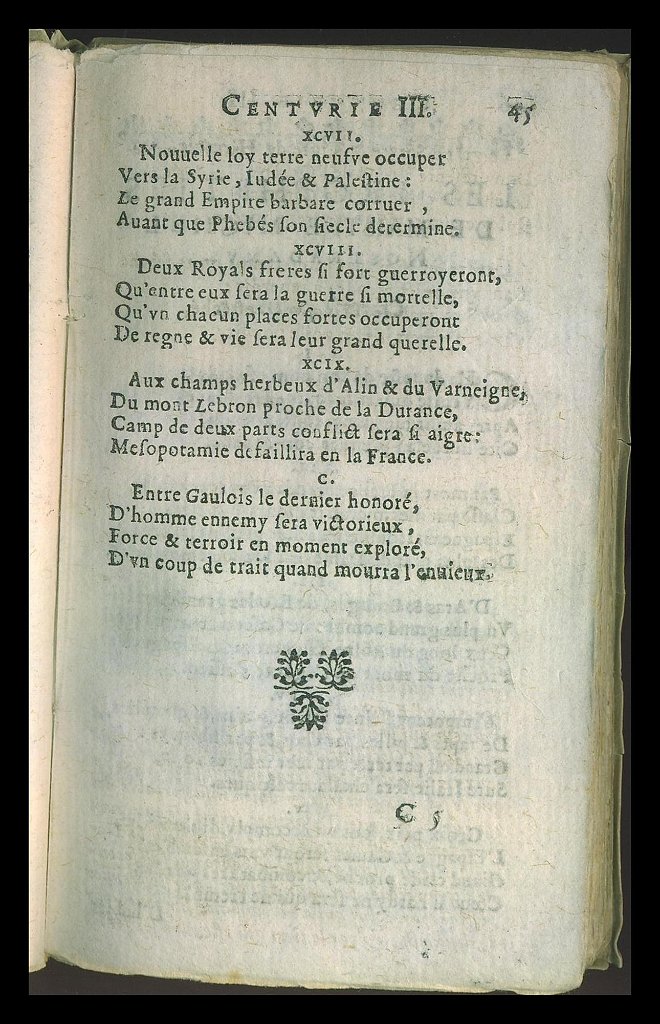 CENTVRIE III. 45
XCVII.
Nouuelle loy terre neufve occuper
Vers la Syrie, Iudée & Paleſtine :
Le grand Empire barbare corruer ,
Auant que Phebés ſon ſiecle determine.
XCVIII.
Deux Royals freres ſi fort guerroyeront,
Qu'entre eux ſera la guerre ſi mortelle,
Qu'vn chacun places fortes occuperont
De regne & vie ſera leur grand querelle.
XCIX.
Aux champs herbeux d'Alin & du Varneigne,
Du mont Lebron proche de la Durance,
Camp de deux parts conflict ſera ſi aigre:
Meſopotamie defaillira en la France.
C.
Entre Gaulois le dernier honoré,
D'homme ennemy ſera victorieux ,
Force & terroir en moment exploré,
D'vn coup de trait quand mourra l'enuieux.
C 5